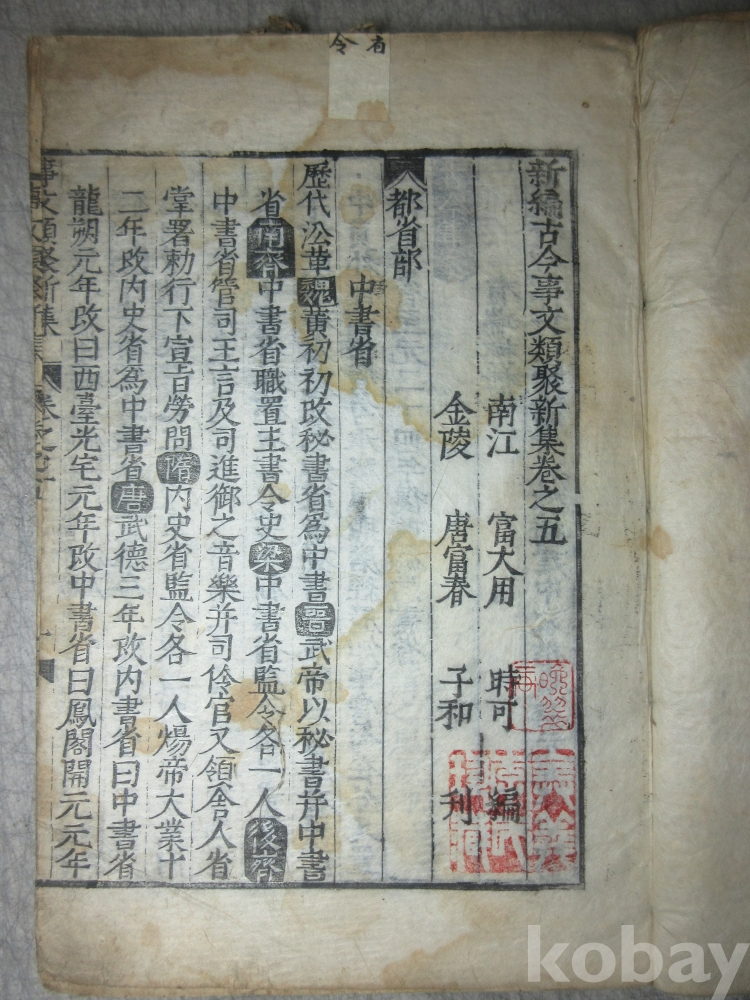 省
令
新編古今事文類聚新集卷之五
南江 富大用 時可 編
金陵 唐富春 子和 刊
都省部
中書省
歷代沿革魏黃初初改秘書省為中書晋武帝以秘書并中書
省南齊中書省職置主書令史梁中書省監令各一人後齊
中書省管司王言及司進御之音樂并司伶官又領舍人省
掌署勅行下宣旨勞問隋内史省監令各一人煬帝大業十
二年改内史省為内書省唐武德三年改内書省曰中書省
龍朔元年改曰西臺光宅元年改中書省曰鳳閣開元元年
事文類聚新集 卷之五
kobay